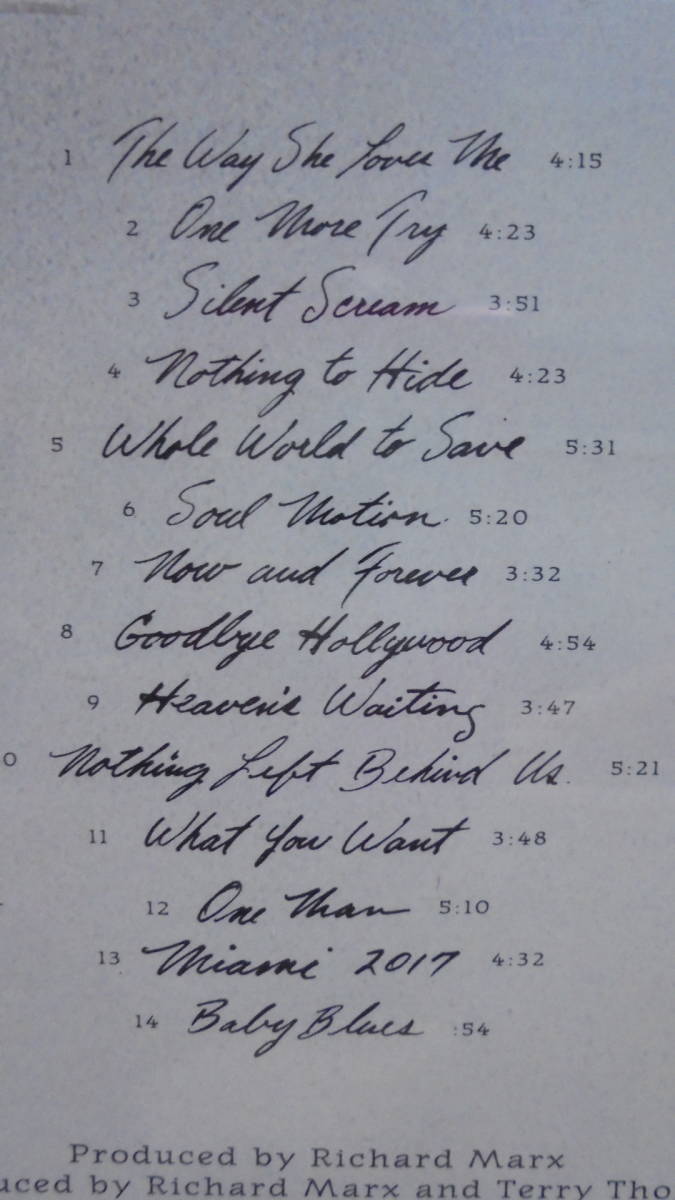 1 The Way She Loves Me 4:15
2 One More Try 4:23
3 Silent Scream 3:51
4 Nothing to Hide 4:23
5 Whole World to Save 5:31
6 Soul Motion 5:20
7 Now and Forever 3:32
8 Goodbye Hollywood 4:54
9 Heaven's Waiting 3:47
0 Nothing Left Behind Us 5:21
11 What You Want 3:48
12 One Man 5:10
13 Miami 2017 4:32
14 Baby Blues :54
Produced by Richard Marx
uced by Richard Marx and Terry Tho